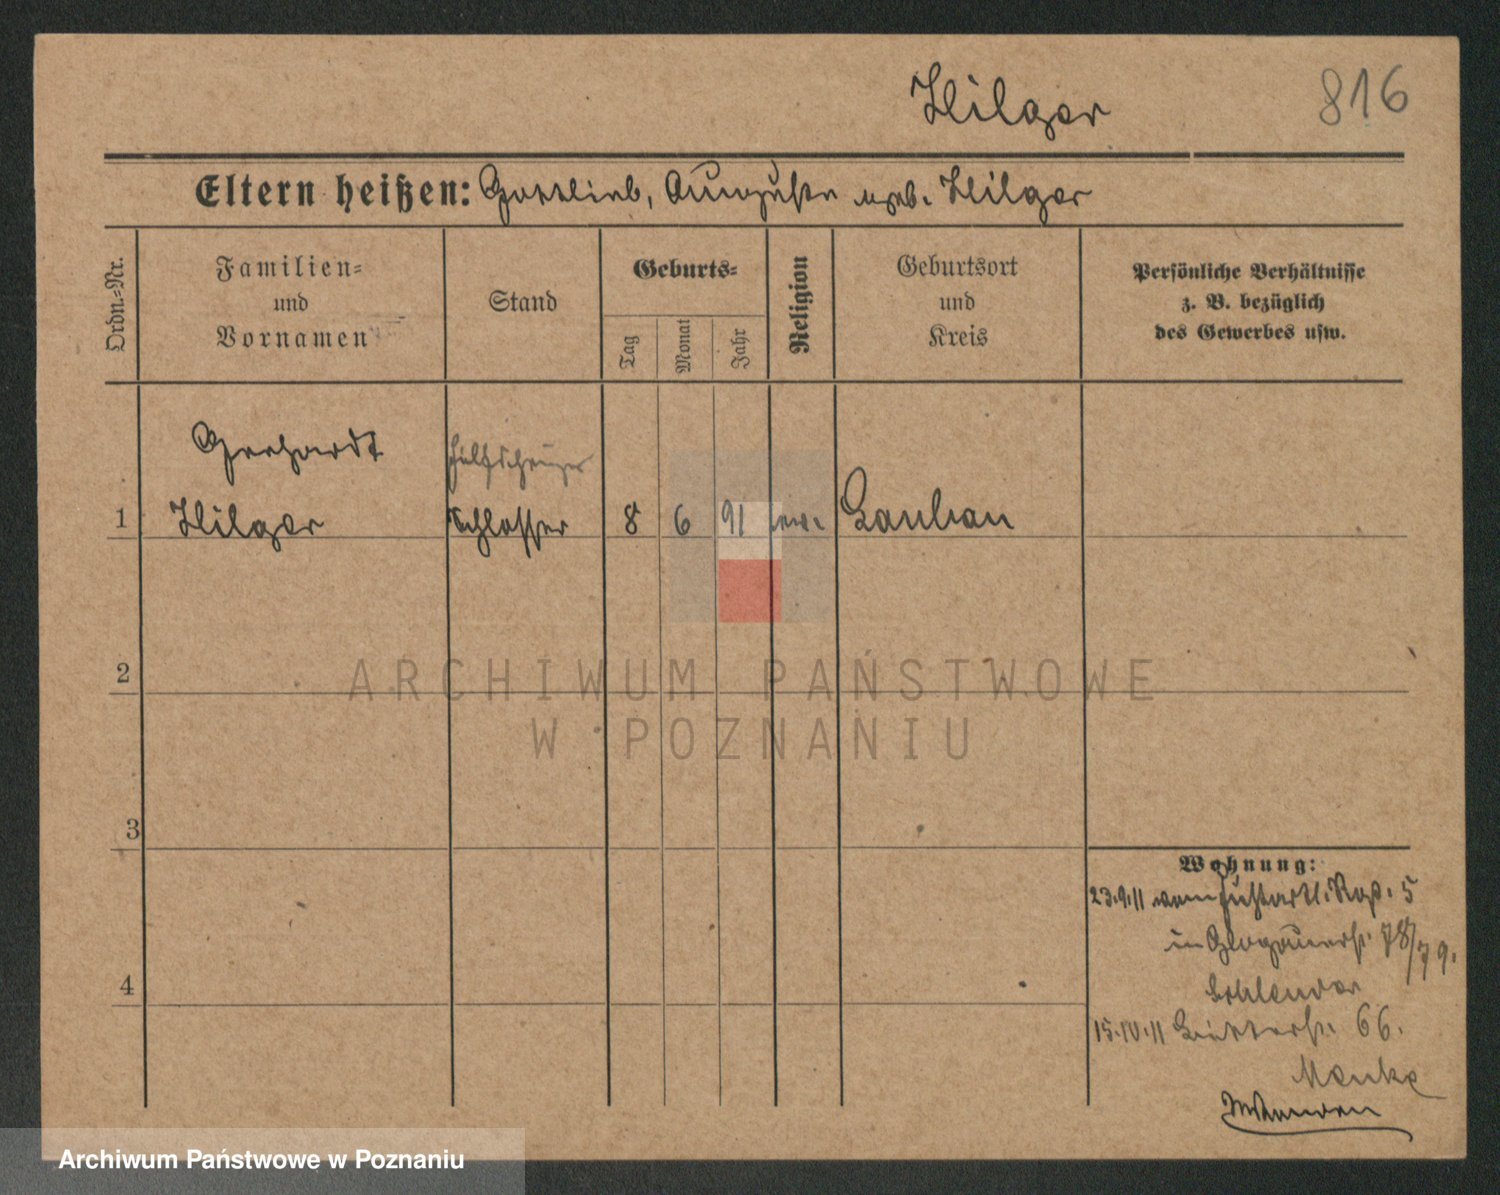 Hilger
816
Eltern heißen: Gottlieb, Auguste geb. Hilger
Ordn.=Nr.
Familien=
und
Vornamen
Stand
Geburts=
Tag
Monat
Jahr
Religion
Geburtsort
und
Kreis
Persönliche Verhältnisse
z. B. bezüglich
des Gewerbes usw.
Gerhardt
Hilfsheizer
1
Hilger
Schlosser
8
6
91
ev.
Lauban
2
3
4
Wohnung:
23.9.11 vom 5
in Glogauerstr. 78/79.
15.10.11 66.
Menke
ARCHIWUM PAŃSTWOWE
W POZNANIU
Archiwum Państwowe w Poznaniu